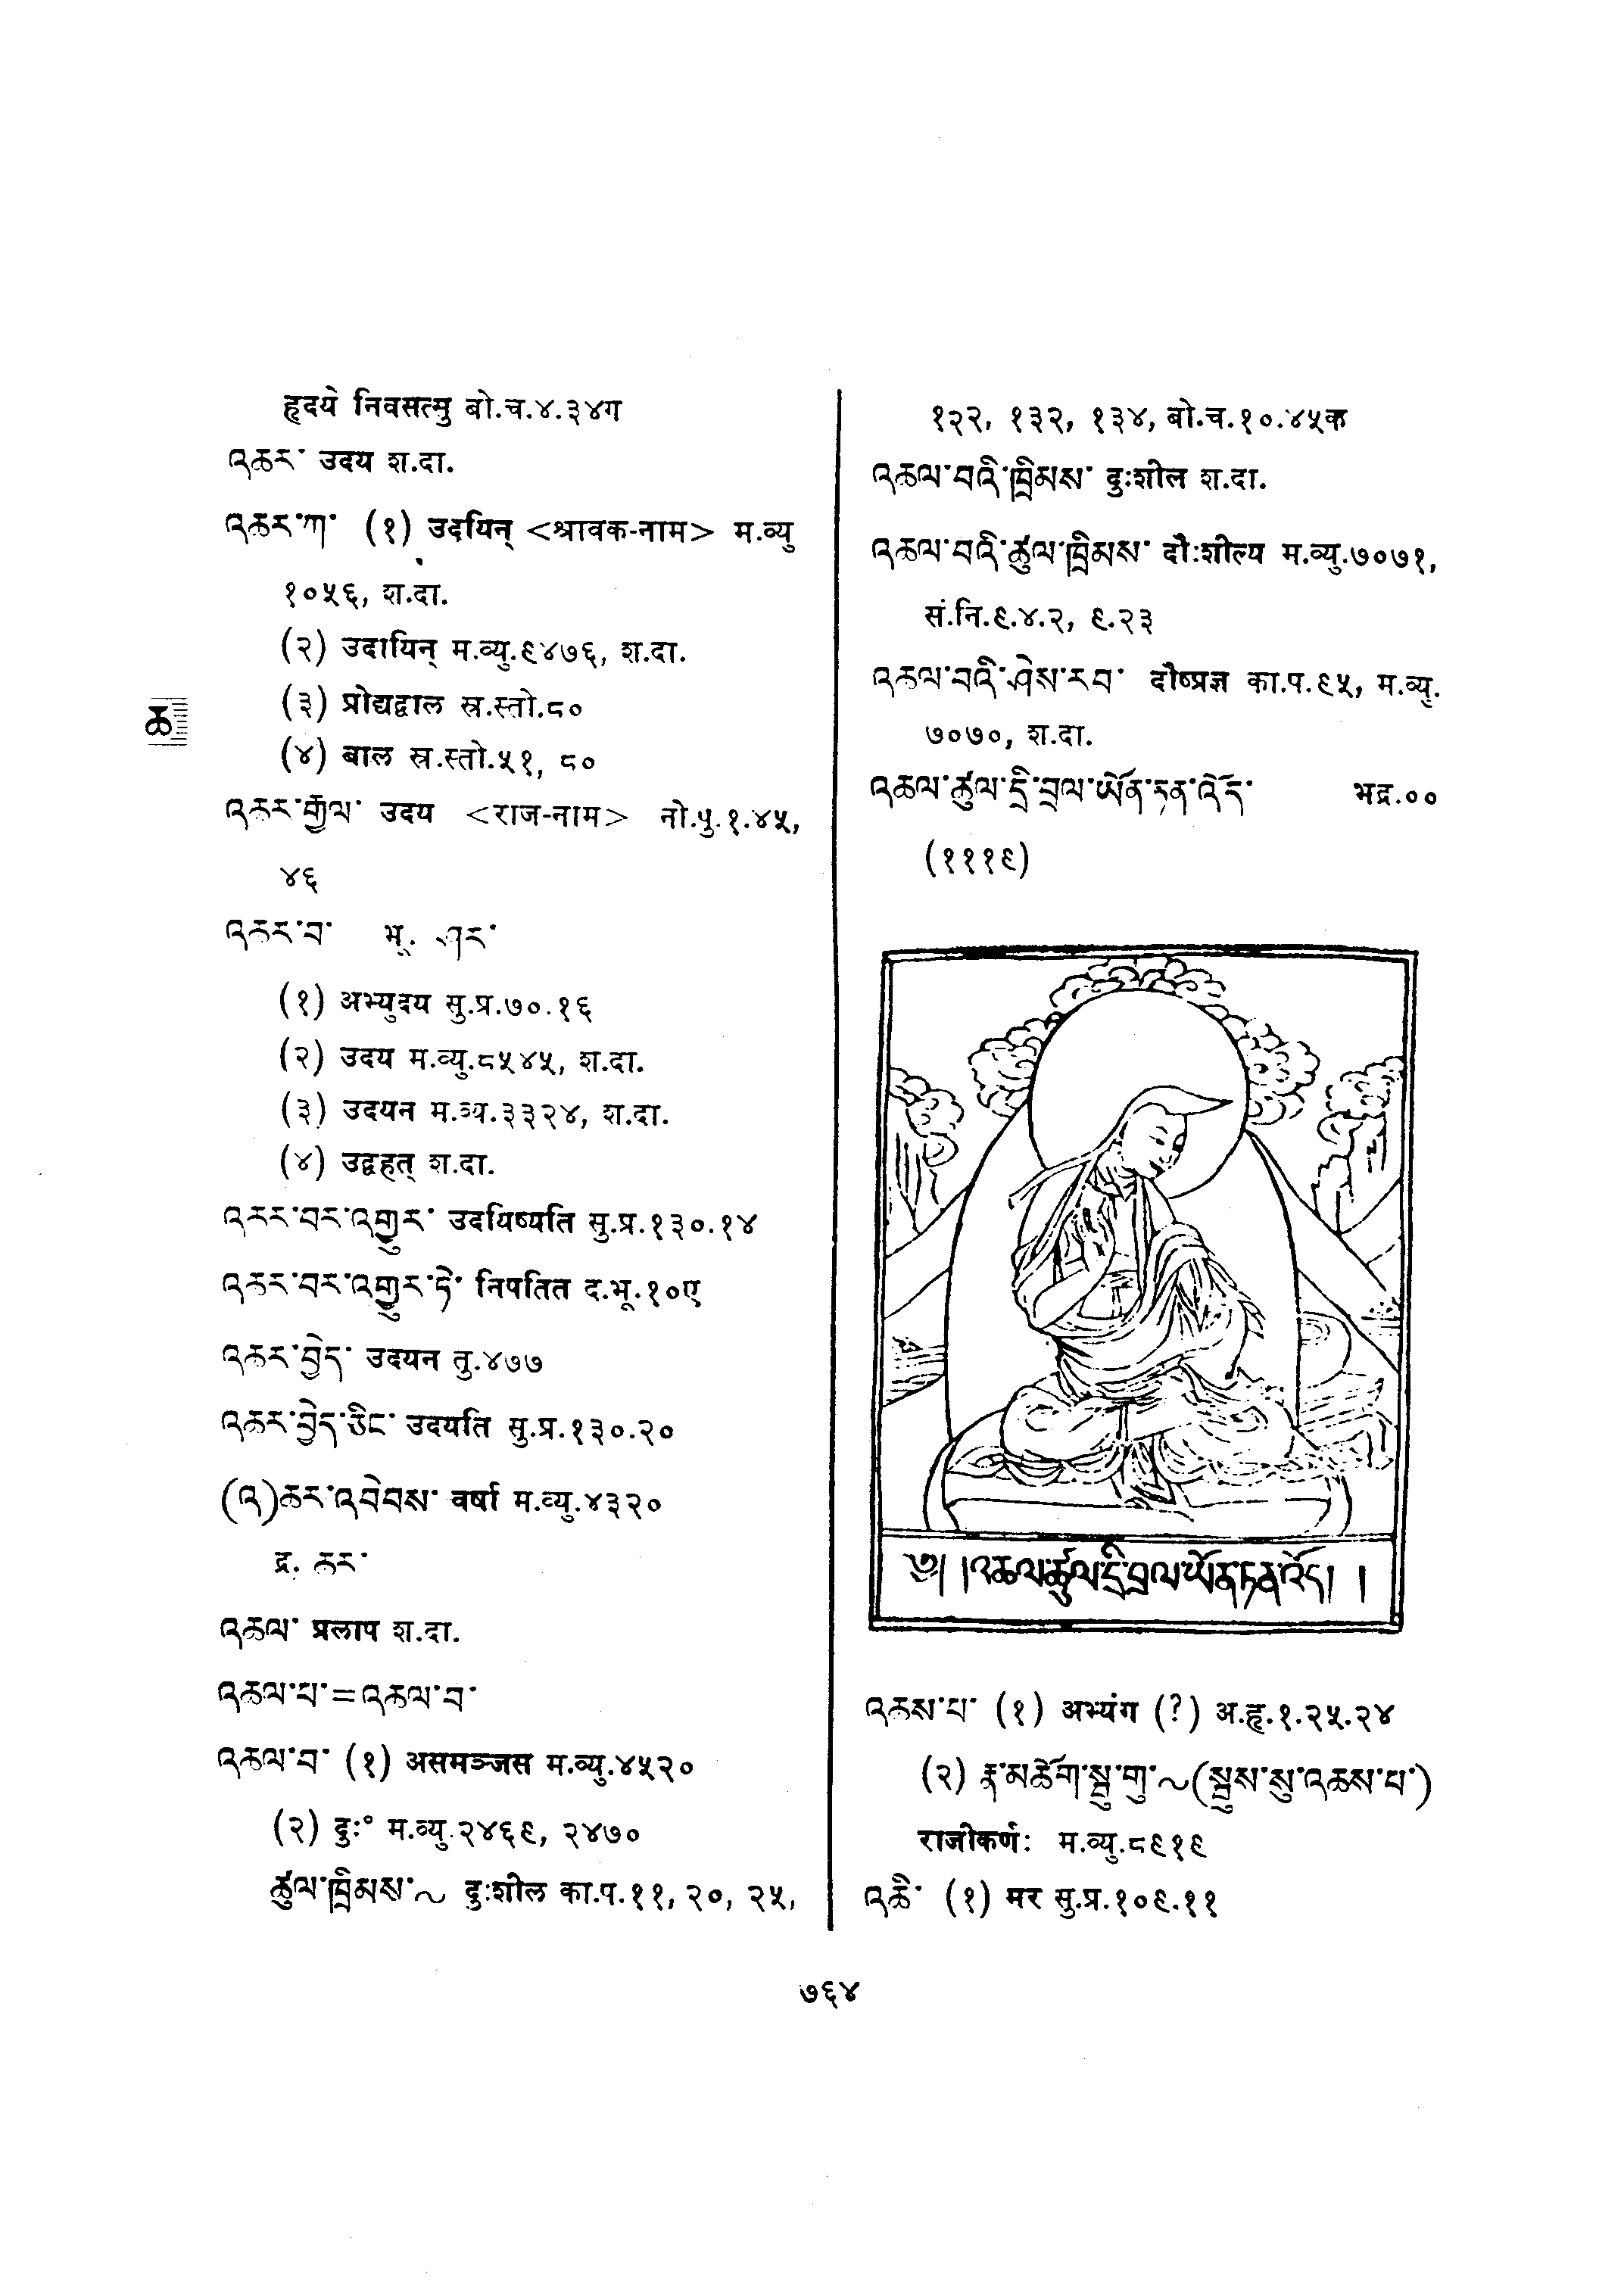 हृदये निवसत्मु बो.च.४.३४ग
འཆར་ उदय श.दा.
འཆར་ཀ་ (१) उदयिन् <श्रावक-नाम> म.व्यु
१०५६, श.दा.
(२) उदायिन् म.व्यु.९४७६, श.दा.
(३) प्रोद्यद्वाल स्र.स्तो.८०
(४) बाल स्र.स्तो.५१, ८०
འཆར་རྒྱལ་ उदय <राज-नाम> नो.पु.१.४५,
४६
འཆར་བ་ भू. ཤར་
(१) अभ्युदय सु.प्र.७०.१६
(२) उदय म.व्यु.८५४५, श.दा.
(३) उदयन म.व्य.३३२४, श.दा.
(४) उद्वहत् श.दा.
འཆར་བར་འགྱུར་ उदयिष्यति सु.प्र.१३०.१४
འཆར་བར་འགྱུར་ཏེ་ निपतित द.भू.१०ए
འཆར་བྱེད་ उदयन तु.४७७
འཆར་བྱེད་ཅིང་ उदयति सु.प्र.१३०.२०
(འ)ཆར་འབེབས་ वर्षा म.व्यु.४३२०
द्र. ཆར་
འཆལ་ प्रलाप श.दा.
འཆལ་པ་=འཆལ་བ་
འཆལ་བ་ (१) असमञ्जस म.व्यु.४५२०
(२) दुः° म.व्यु.२४६९, २४७०
ཚུལ་ཁྲིམས་~ दुःशील का.प.११, २०, २५,
ཆ
१२२, १३२, १३४, बो.च.१०.४५क
འཆལ་བའི་ཁྲིམས་ दुःशील श.दा.
འཆལ་བའི་ཚུལ་ཁྲིམས་ दौःशील्य म.व्यु.७०७१,
सं.नि.९.४.२, ९.२३
འཆལ་བའི་ཤེས་རབ་ दौष्प्रज्ञ का.प.९५, म.व्यु.
७०७०, श.दा.
འཆལ་ཚུལ་དྲི་བྲལ་ཡོན་ཏན་འོད་ भद्र.००
(१११९)
༄། །འཆལ་ཚུལ་དྲི་བྲལ་ཡོན་ཏན་འོད། །
འཆས་པ་ (१) अभ्यंग (?) अ.हृ.१.२५.२४
(२) རྣ་མཆོག་སྦུ་གུ་~(སྦུས་སུ་འཆས་པ་)
राजीकर्णः म.व्यु.८९१९
འཆི་ (१) मर सु.प्र.१०९.११
७६४